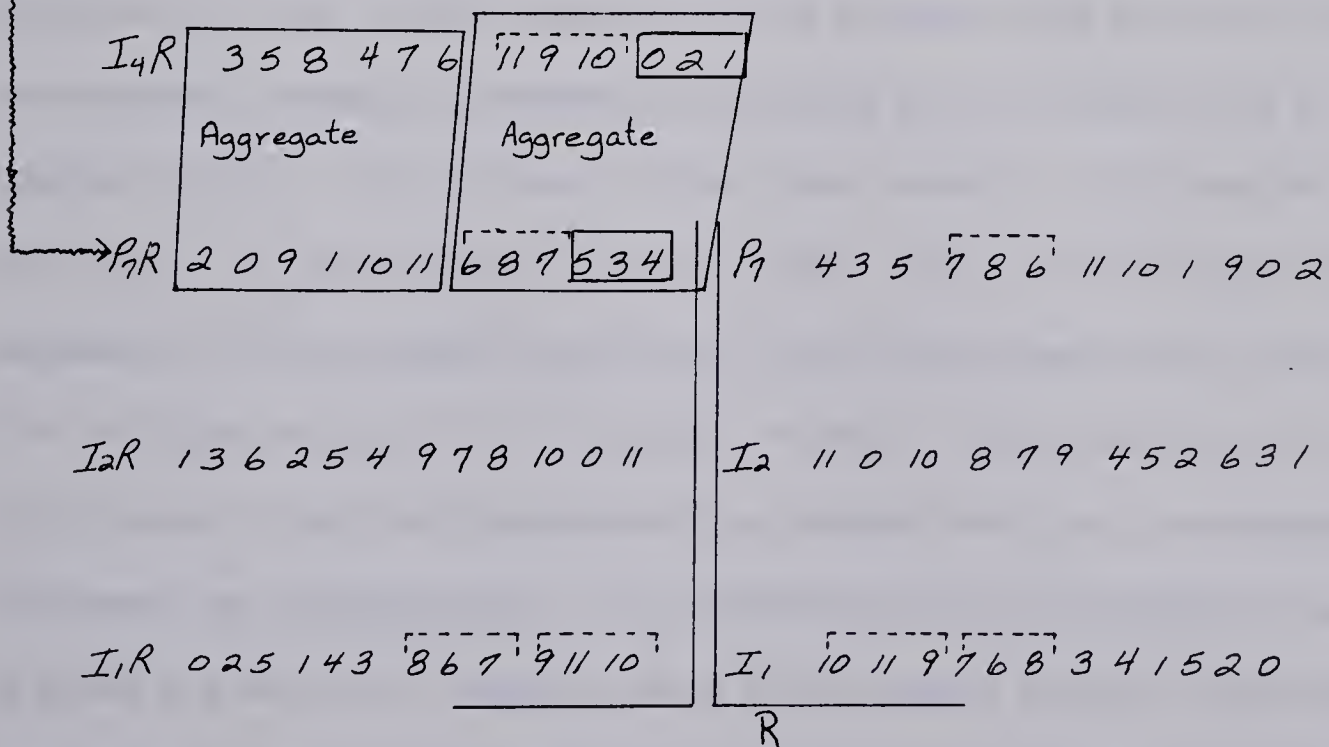 I4R 3 5 8 4 7 6 11 9 10 0 2 1
Aggregate Aggregate
P7R 2 0 9 1 10 11 6 8 7 5 3 4 P7 4 3 5 7 8 6 11 10 1 9 0 2
I2R 1 3 6 2 5 4 9 7 8 10 0 11 I2 11 0 10 8 7 9 4 5 2 6 3 1
I1R 0 2 5 1 4 3 8 6 7 9 11 10 I1 10 11 9 7 6 8 3 4 1 5 2 0
R